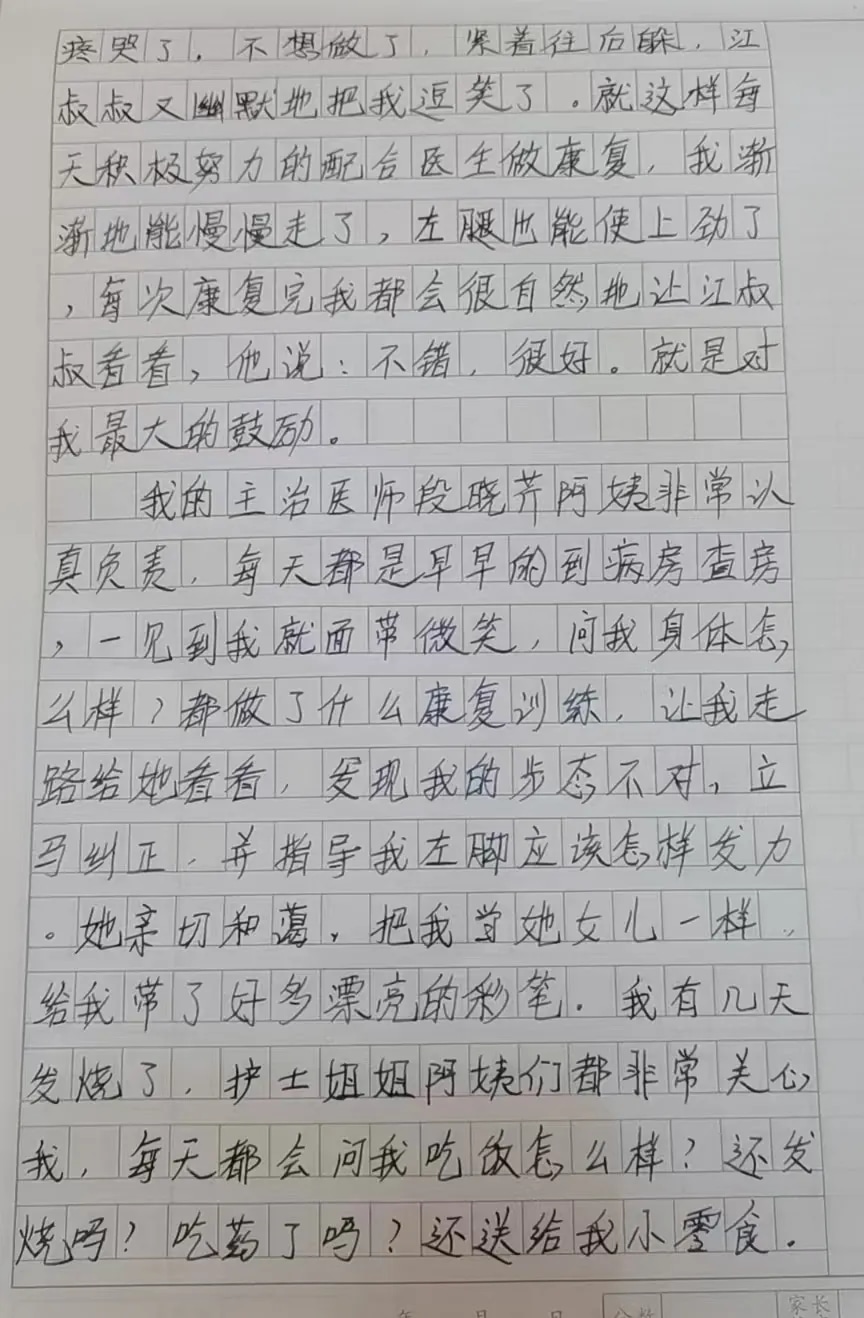 疼哭了，不想做了，紧着往后躲，江
叔叔又幽默地把我逗笑了。就这样每
天积极努力的配合医生做康复，我渐
渐地能慢慢走了，左腿也能使上劲了
，每次康复完我都会很自然地让江叔
叔看看，他说：不错，很好。就是对
我最大的鼓励。
我的主治医师段晓芥阿姨非常认
真负责，每天都是早早的到病房查房
，一见到我就面带微笑，问我身体怎
么样？都做了什么康复训练，让我走
路给她看看，发现我的步态不对，立
马纠正，并指导我左脚应该怎样发力
。她亲切和蔼，把我当她女儿一样，
给我带了好多漂亮的彩笔．我有几天
发烧了，护士姐姐阿姨们都非常关心
我，每天都会问我吃饭怎么样？还发
烧吗？吃药了吗？还送给我小零食．
年 月 日
家长